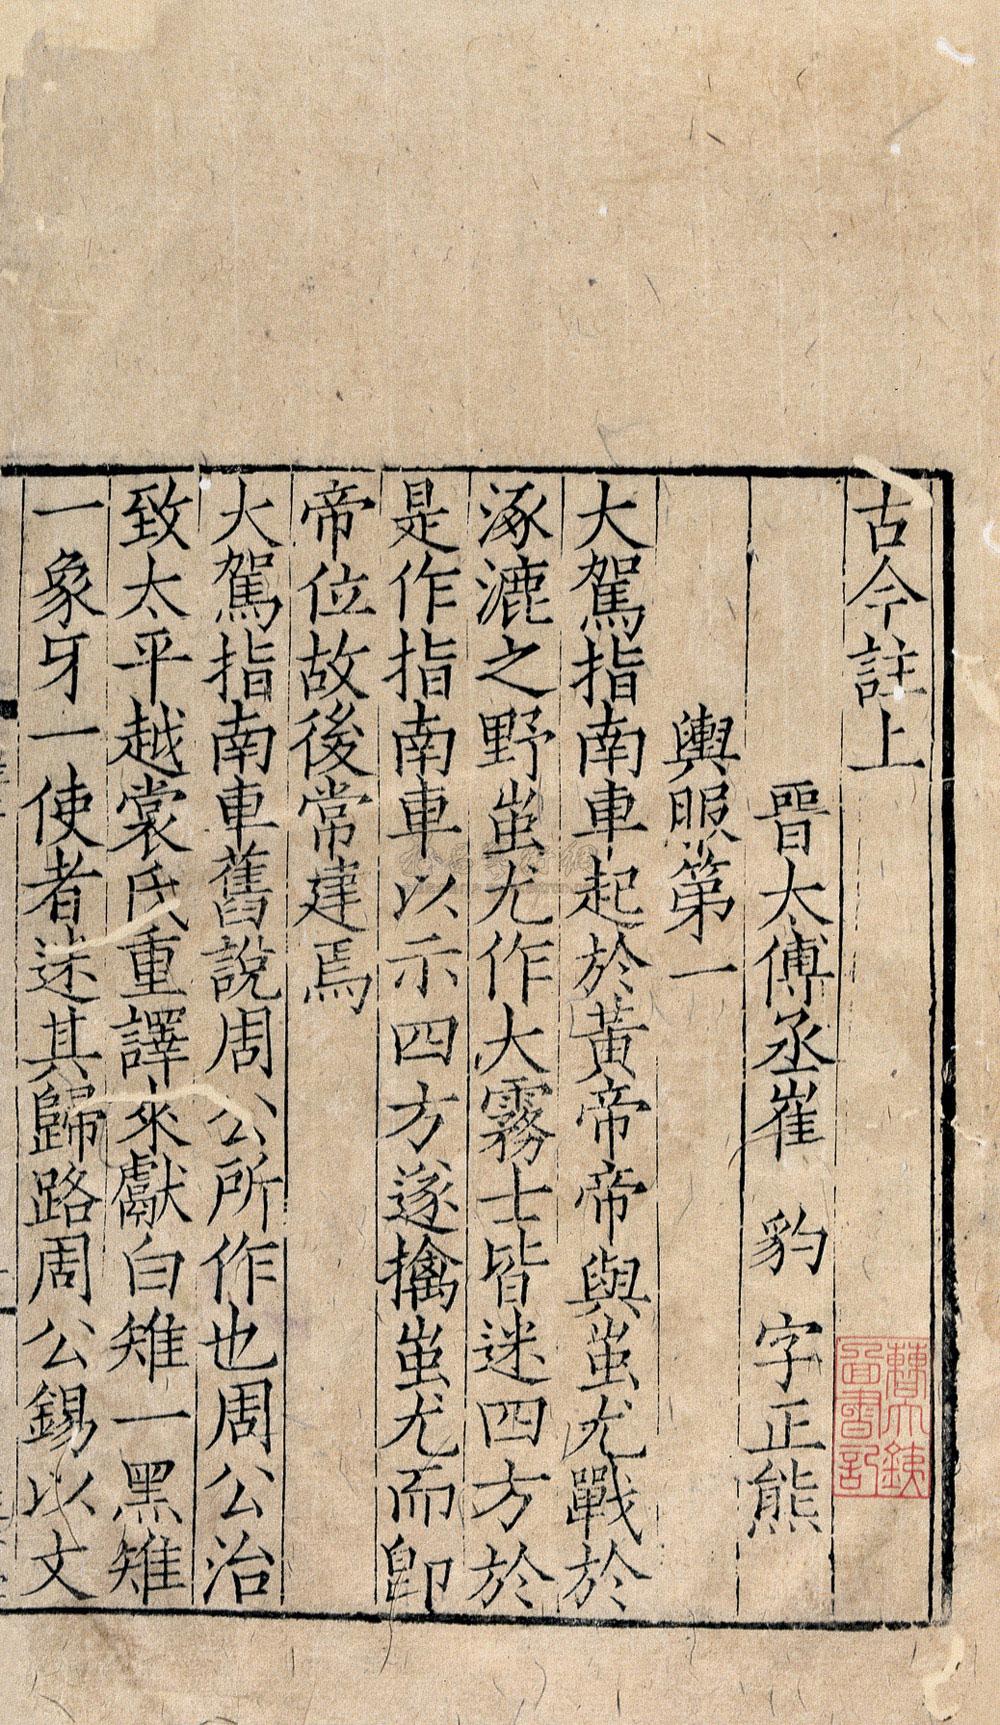 古今註上
晉太傅丞崔 豹 字正熊
輿服第一
大駕指南車起於黃帝帝與蚩尤戰於
涿漉之野蚩尤作大霧士皆迷四方於
是作指南車以示四方遂擒蚩尤而即
帝位故後常建焉
大駕指南車舊說周公所作也周公治
致太平越裳氏重譯來獻白雉一黑雉
一象牙一使者迷其歸路周公錫以文